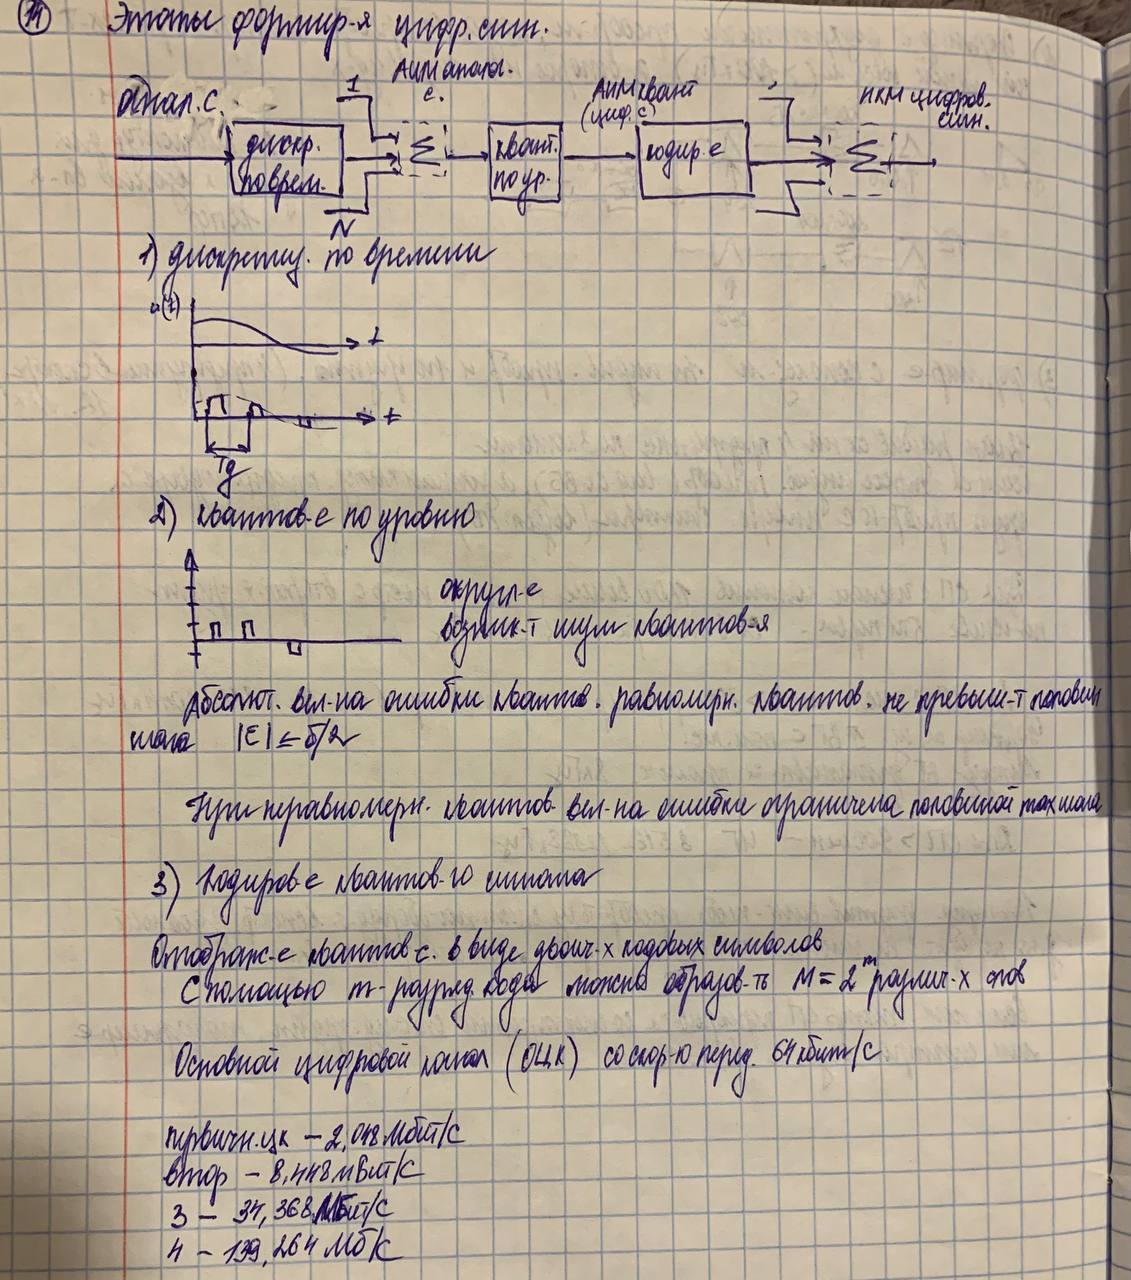 14 Этапы формир-я цифр. сигн.
АИМ аналог.
с.
I
анал. с.
дискр.
по врем.
N
Σ
квант.
по ур.
АИМ квант
(циф. с)
кодир-е
Σ
ИКМ цифров.
сигн.
1) дискретиз. по времени
u(t)
t
t
Tд
2) квантов-е по уровню
округл-е
возник-т шум квантов-я
Абсолют. вел-на ошибки квантов. равномерн. квантов. не превыш-т половин
шага |Е| ≤ б/2
При неравномерн. квантов. вел-на ошибки ограничена половиной max шага
3) Кодиров-е квантов-го сигнала
Отображ-е квантов с. в виде двоич-х кодовых символов
С помощью m-разряд. кода можно образов-ть M = 2^m различ-х слов
Основной цифровой канал (ОЦК) со скор-ю перед. 64 кбит/с
первичн. цк – 2,048 Мбит/с
втор – 8,448 мбит/с
3 – 34,368 Мбит/с
4 – 139,264 Мб/с